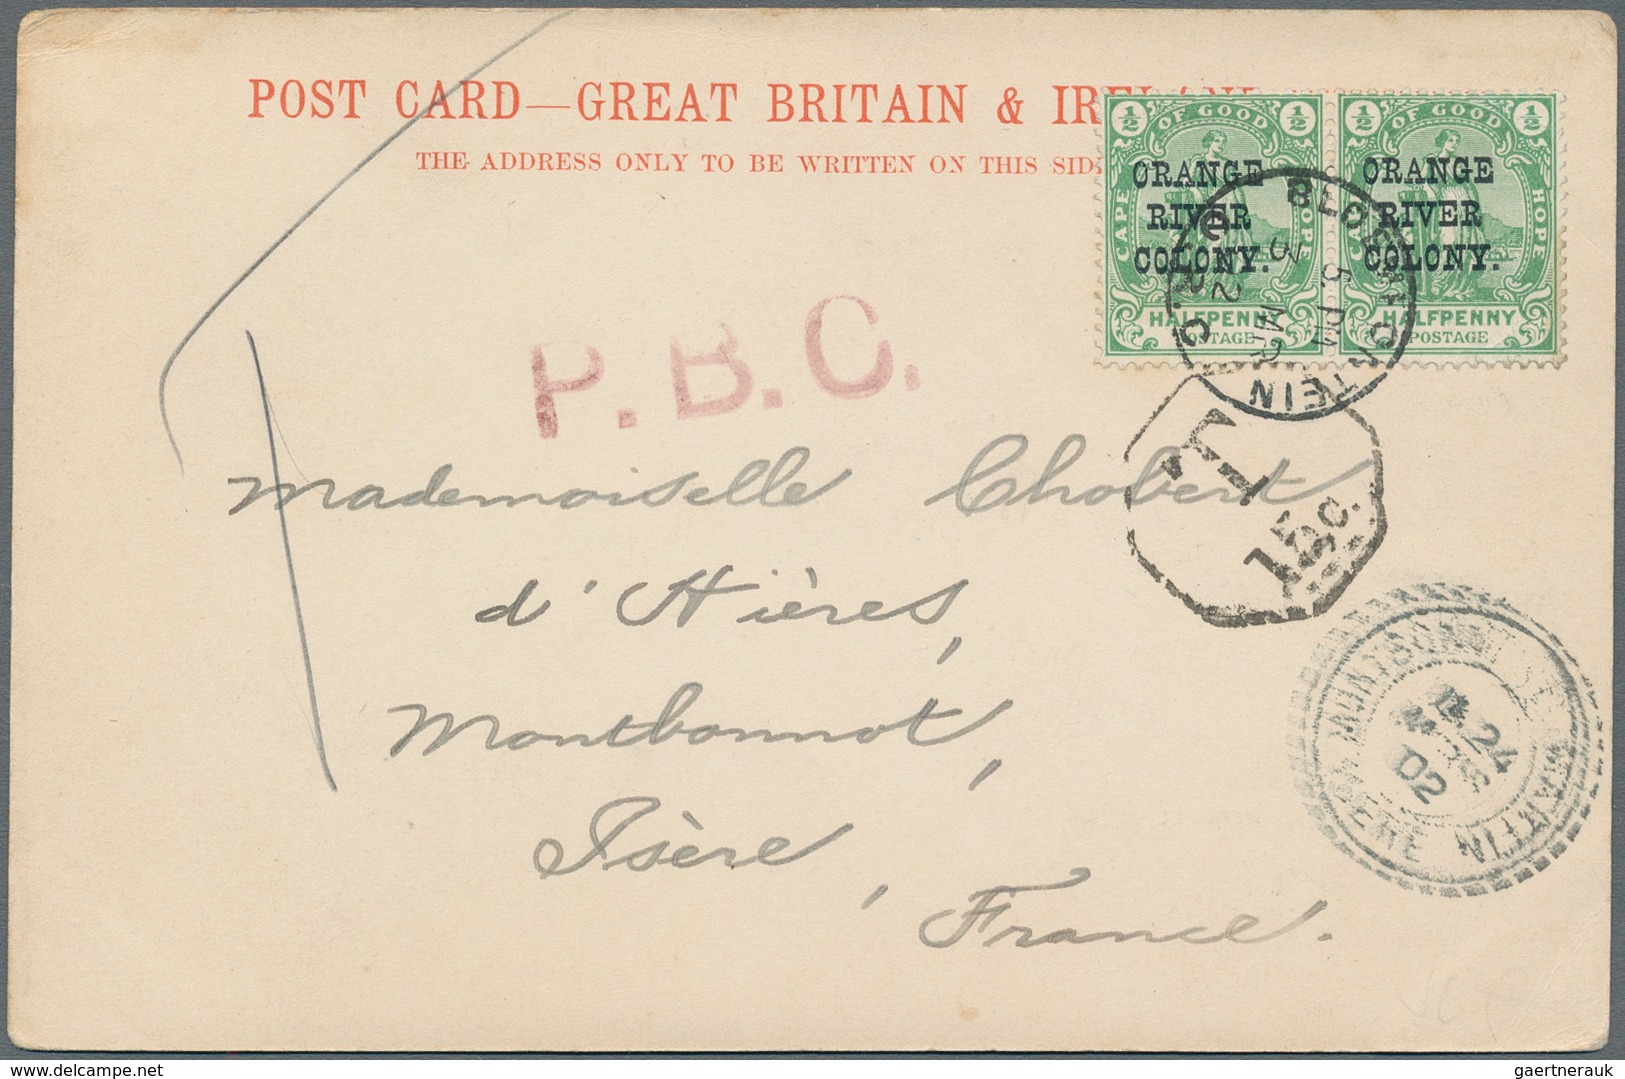 POST CARD—GREAT BRITAIN &
THE ADDRESS ONLY TO BE WRITTEN ON THIS
½ OF GOOD ½
CAPE HOPE
ORANGE
RIVER
COLONY.
HALFPENNY
POSTAGE
½ OF GOOD ½
CAPE HOPE
ORANGE
RIVER
COLONY.
HALFPENNY
POSTAGE
5 PM
MR
P.B.C.
T
15c.
Mademoiselle Chobert
d'Hières,
Montbonnot,
Isère,
France.
MARTIN
24
02
gaertnerauk